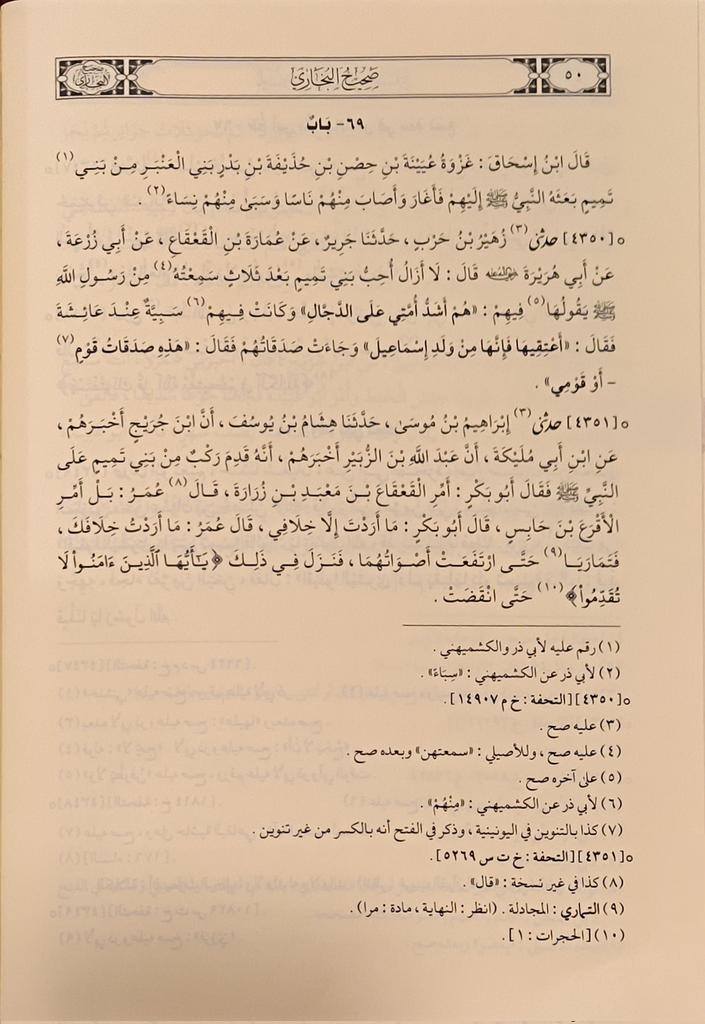 ٥٠
صحيح البخاري
صحيح البخاري
٦٩- بَابٌ
قَالَ ابْنُ إِسْحَاقَ : غَزْوَةُ عُيَيْنَةَ بْنِ حِصْنِ بْنِ حُذَيْفَةَ بْنِ بَدْرٍ بَنِي الْعَنْبَرِ مِنْ بَنِي (١)
تَمِيمٍ بَعَثَهُ النَّبِيُّ ﷺ إِلَيْهِمْ فَأَغَارَ وَأَصَابَ مِنْهُمْ نَاسًا وَسَبَىٰ مِنْهُمْ نِسَاءً (٢) .
٥ [٤٣٥٠] حدثني (٣) زُهَيْرُ بْنُ حَرْبٍ ، حَدَّثَنَا جَرِيرٌ ، عَنْ عُمَارَةَ بْنِ الْقَعْقَاعِ ، عَنْ أَبِي زُرْعَةَ ،
عَنْ أَبِي هُرَيْرَةَ رضي الله عنه قَالَ : لَا أَزَالُ أُحِبُّ بَنِي تَمِيمٍ بَعْدَ ثَلَاثٍ سَمِعْتُهُ (٤) مِنْ رَسُولِ اللَّهِ
ﷺ يَقُولُهَا (٥) فِيهِمْ : «هُمْ أَشَدُّ أُمَّتِي عَلَى الدَّجَّالِ» وَكَانَتْ فِيهِمْ (٦) سَبِيَّةٌ عِنْدَ عَائِشَةَ
فَقَالَ : «أَعْتِقِيهَا فَإِنَّهَا مِنْ وَلَدِ إِسْمَاعِيلَ» وَجَاءَتْ صَدَقَاتُهُمْ فَقَالَ : «هَذِهِ صَدَقَاتُ قَوْمٍ (٧)
- أَوْ قَوْمِي» .
٥ [٤٣٥١] حدثني (٣) إِبْرَاهِيمُ بْنُ مُوسَىٰ ، حَدَّثَنَا هِشَامُ بْنُ يُوسُفَ ، أَنَّ ابْنَ جُرَيْجٍ أَخْبَرَهُمْ ،
عَنِ ابْنِ أَبِي مُلَيْكَةَ ، أَنَّ عَبْدَ اللَّهِ بْنَ الزُّبَيْرِ أَخْبَرَهُمْ ، أَنَّهُ قَدِمَ رَكْبٌ مِنْ بَنِي تَمِيمٍ عَلَى
النَّبِيِّ ﷺ فَقَالَ أَبُو بَكْرٍ : أَمِّرِ الْقَعْقَاعَ بْنَ مَعْبَدِ بْنِ زُرَارَةَ ، قَالَ (٨) عُمَرُ : بَلْ أَمِّرِ
الْأَقْرَعَ بْنَ حَابِسٍ ، قَالَ أَبُو بَكْرٍ : مَا أَرَدْتَ إِلَّا خِلَافِي ، قَالَ عُمَرُ : مَا أَرَدْتُ خِلَافَكَ ،
فَتَمَارَيَا (٩) حَتَّى ارْتَفَعَتْ أَصْوَاتُهُمَا ، فَنَزَلَ فِي ذَلِكَ ﴿يَٰٓأَيُّهَا ٱلَّذِينَ ءَامَنُوا۟ لَا
تُقَدِّمُوا۟﴾ (١٠) حَتَّى انْقَضَتْ .
(١) رقم عليه لأبي ذر والكشميهني .
(٢) لأبي ذر عن الكشميهني : «سِبَاءً» .
٥ [٤٣٥٠] [التحفة : خ م ١٤٩٠٧] .
(٣) عليه صح .
(٤) عليه صح ، وللأصيلي : «سمعتهن» وبعده صح .
(٥) على آخره صح .
(٦) لأبي ذر عن الكشميهني : «مِنْهُمْ» .
(٧) كذا بالتنوين في اليونينية ، وذكر في الفتح أنه بالكسر من غير تنوين .
٥ [٤٣٥١] [التحفة : خ ت س ٥٢٦٩] .
(٨) كذا في غير نسخة : «قال» .
(٩) التماري : المجادلة . (انظر : النهاية ، مادة : مرا) .
(١٠) [الحجرات : ١] .